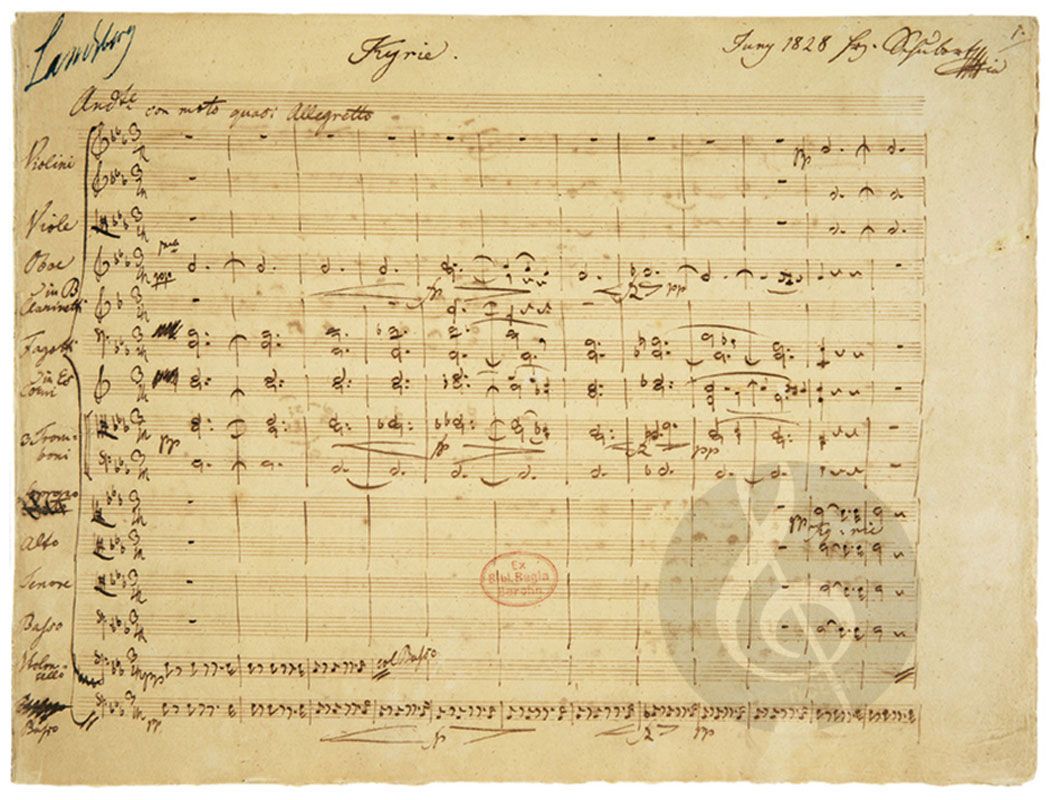 Landsberg
Kyrie.
Juny 1828 frz. Schubert
1.
Andte con moto quasi Allegretto
Violini
Viole
pp
Oboe
pp
in B
Clarinetti
Fagotti
in Es
Corni
3 Trom-
boni
pp
Soprano
pp Ky-rie
Alto
Tenore
Basso
Violon-
cello
col Basso
Basso
pp
Ex
Bibl. Regia
Berolin.